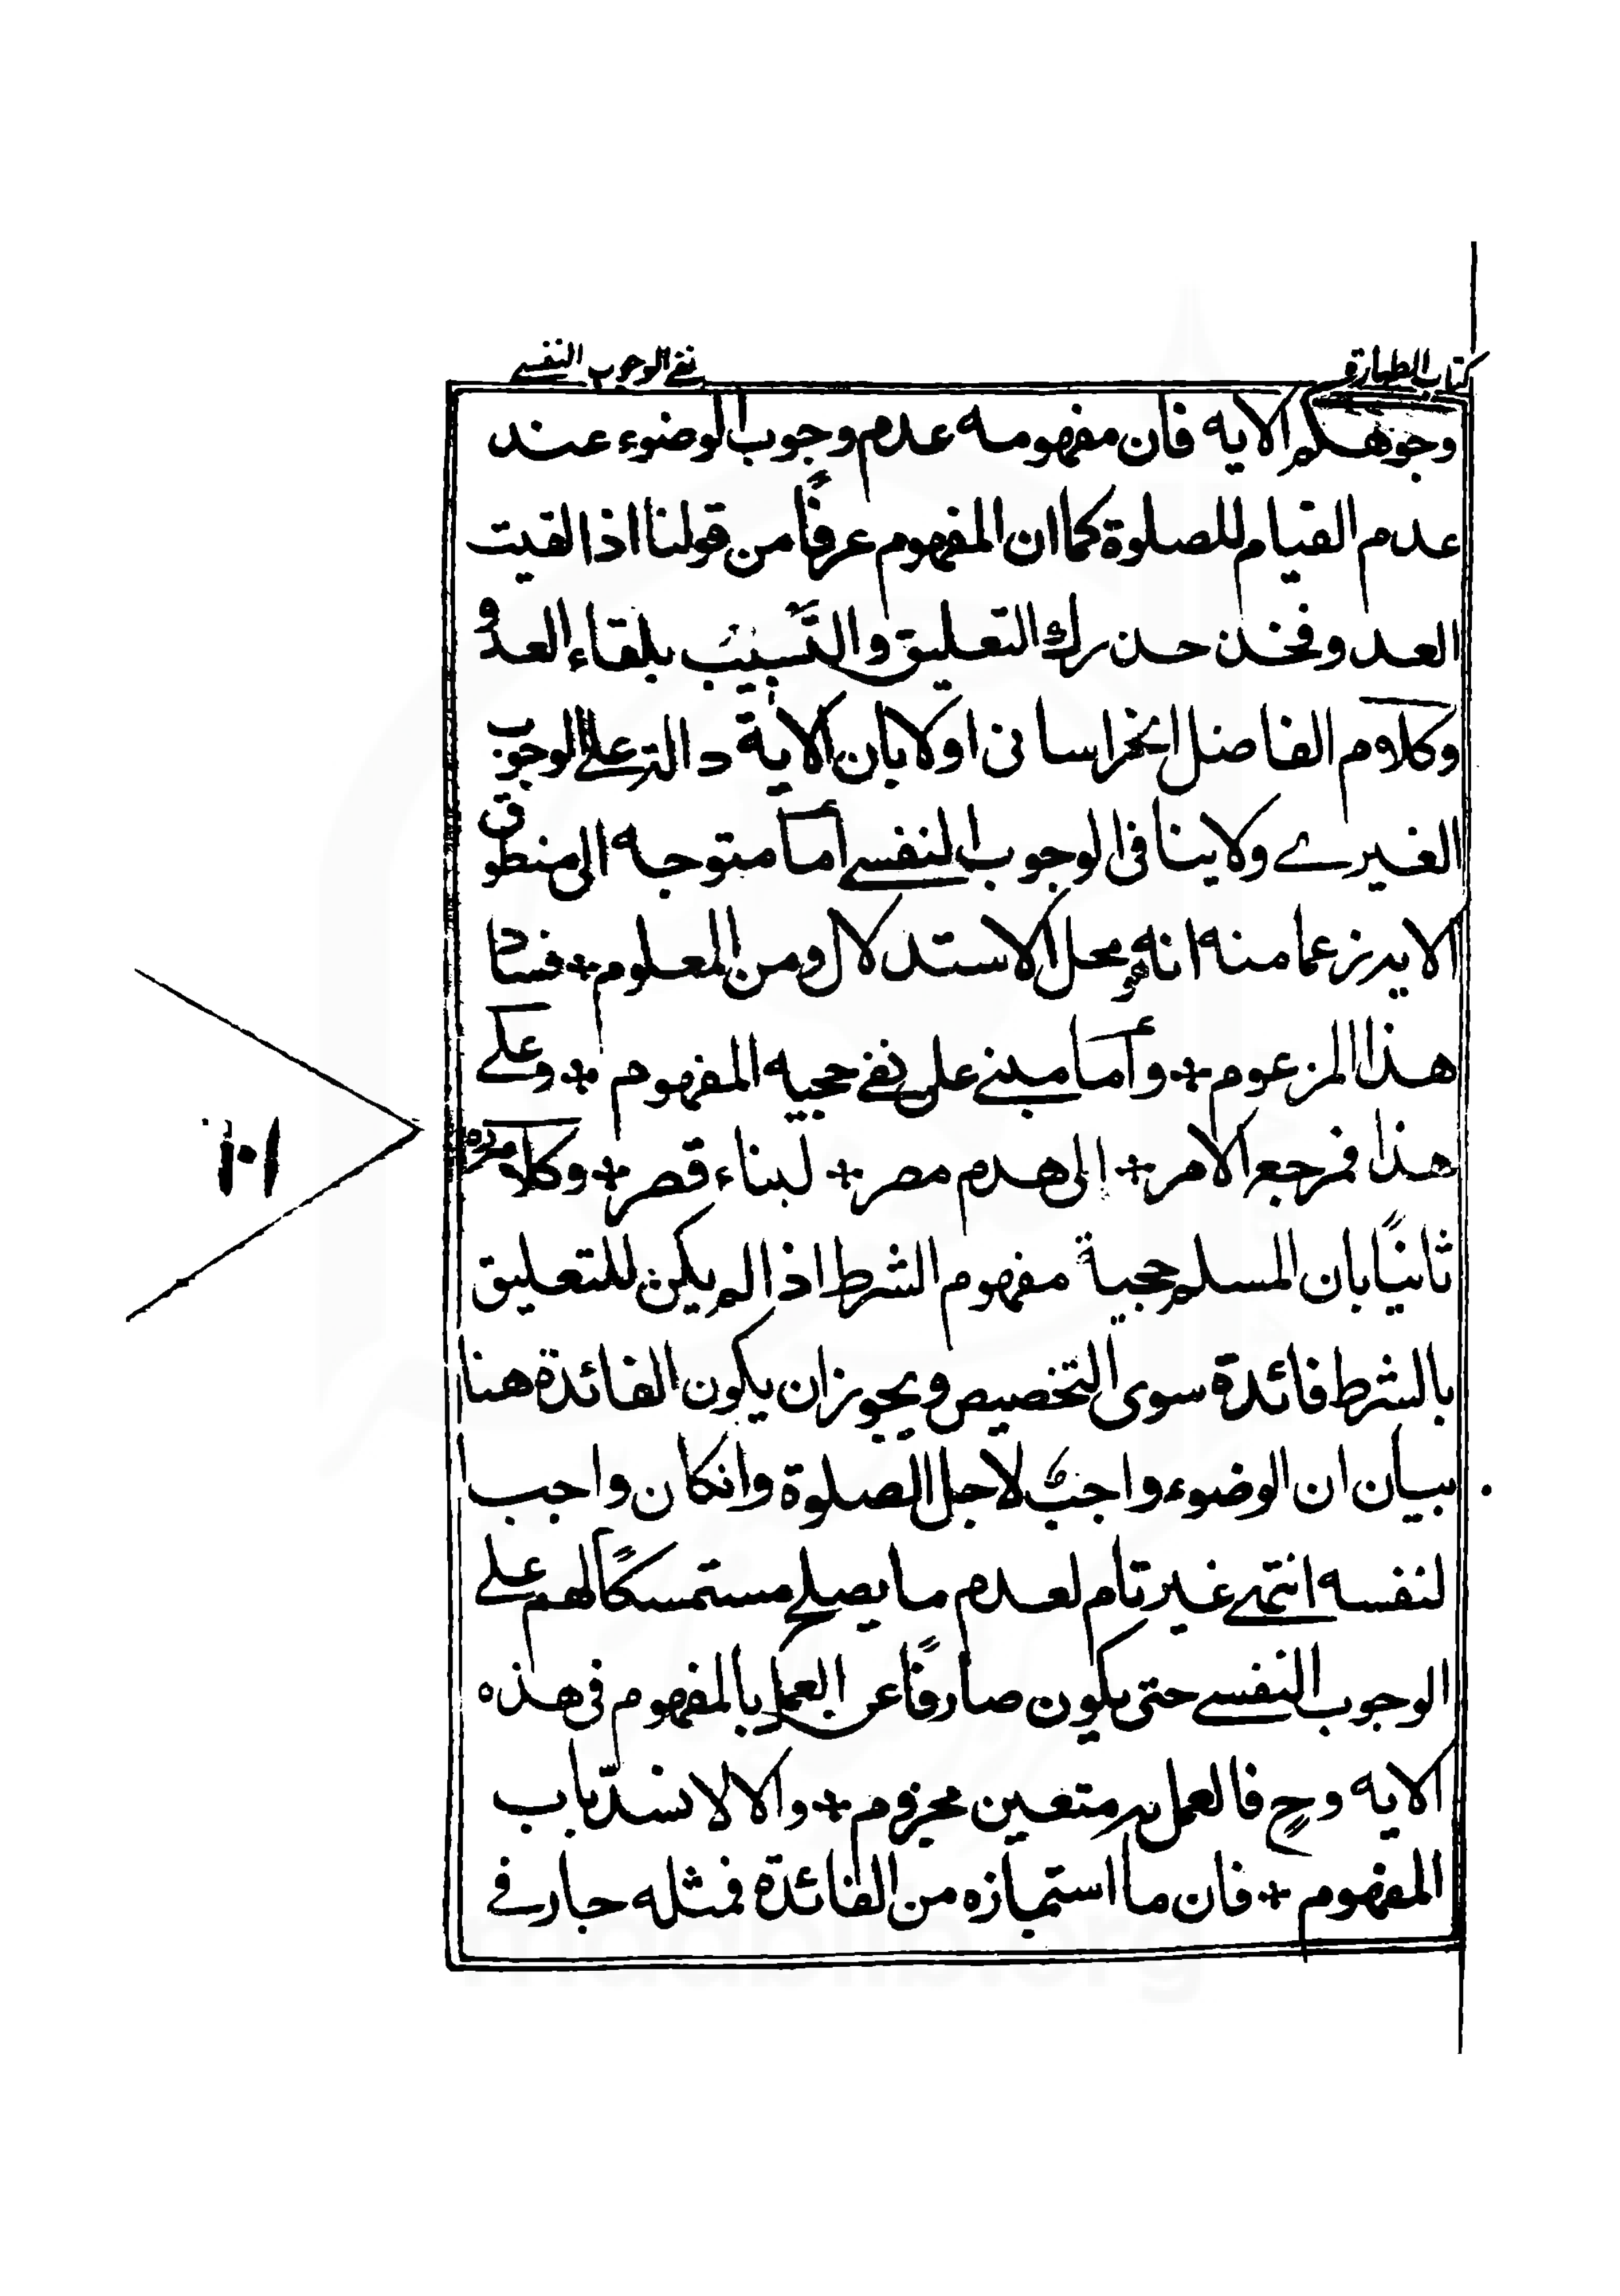 كتاب الطهارة
نفي الوجوب النفسي
وجوهكم الايه فان مفهومه عدم وجوب الوضوء عند
عدم القيام للصلوة كما ان المفهوم عرفًا من قولنا اذا لقيت
العدو فخذ حذرك التعليق والتسبيب بلقاء العدو
وكلام الفاضل الخراسانى اولا بان الاية دالة على الوجوب
الغيرے ولا ينافى الوجوب النفسے أما متوجه الى منطوق
الايه زعما منه انه هو محل الاستدلال ومن المعلوم + فساد
هذا المزعوم + وأما مبنے على نفے حجيه المفهوم + وعلے
هذا فمرجع الامر + الى هدم مصر + لبناء قصر + وكلامه
ثانيًا بان المسلم حجية مفهوم الشرط اذا لم يكن للتعليق
بالشرط فائدة سوى التخصيص ويجوز ان يكون الفائدة هنا
بيان ان الوضوء واجب لاجل الصلوة وانكان واجب
لنفسه انتهے غير تام لعدم ما يصلح مستمسكًا لهم علے
الوجوب النفسے حتى يكون صارفًا عن العمل بالمفهوم فى هذه
الايه وح فالعمل به متعين مجزوم + والا لانسدّ باب
المفهوم + فان ما استمازه من الفائدة فمثله جار فے
١٠١